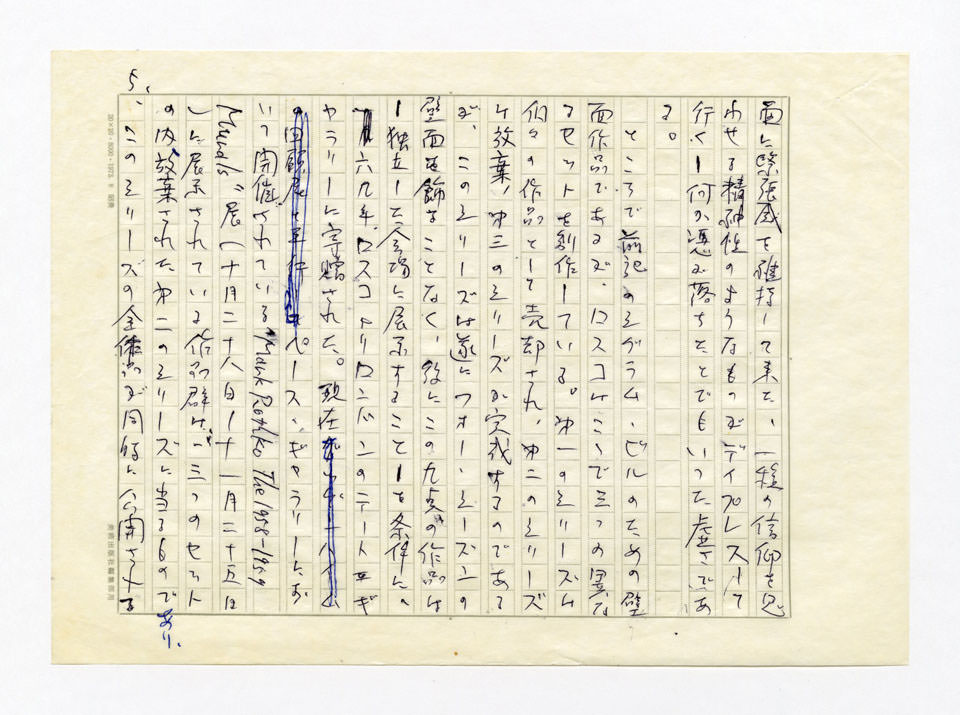 面に緊張感を維持して来た、一種の信仰を思
わせる精神性のようなものがディプレスして
行く―何か憑が落ちたとでもいった虚さであ
る。
ところで前記のシグラム・ビルのための壁
面作品であるが、ロスコはここで三つの異な
るセットを制作している。第一のシリーズは
個々の作品として売却され、第二のシリーズ
は放棄、第三のシリーズが完成するのである
が、このシリーズは遂にフォー・シーズンの
壁面を飾ることなく、後にこの九点の作品は
―独立した会場に展示すること―を条件に、
六九年、ロスコよりロンドンのテート・ギ
ャラリーに寄贈された。現在
ペース・ギャラリーにお
いて開催されている“Mark Rothko The 1958-1959
Murals”展(十月二十八日―十一月二十五日
)に展示されている作品群は、三つのセット
の内放棄された第二のシリーズに当るもので
あり、
このシリーズの全体が同時に公開される
5.
20×20
美術出版社編集部用